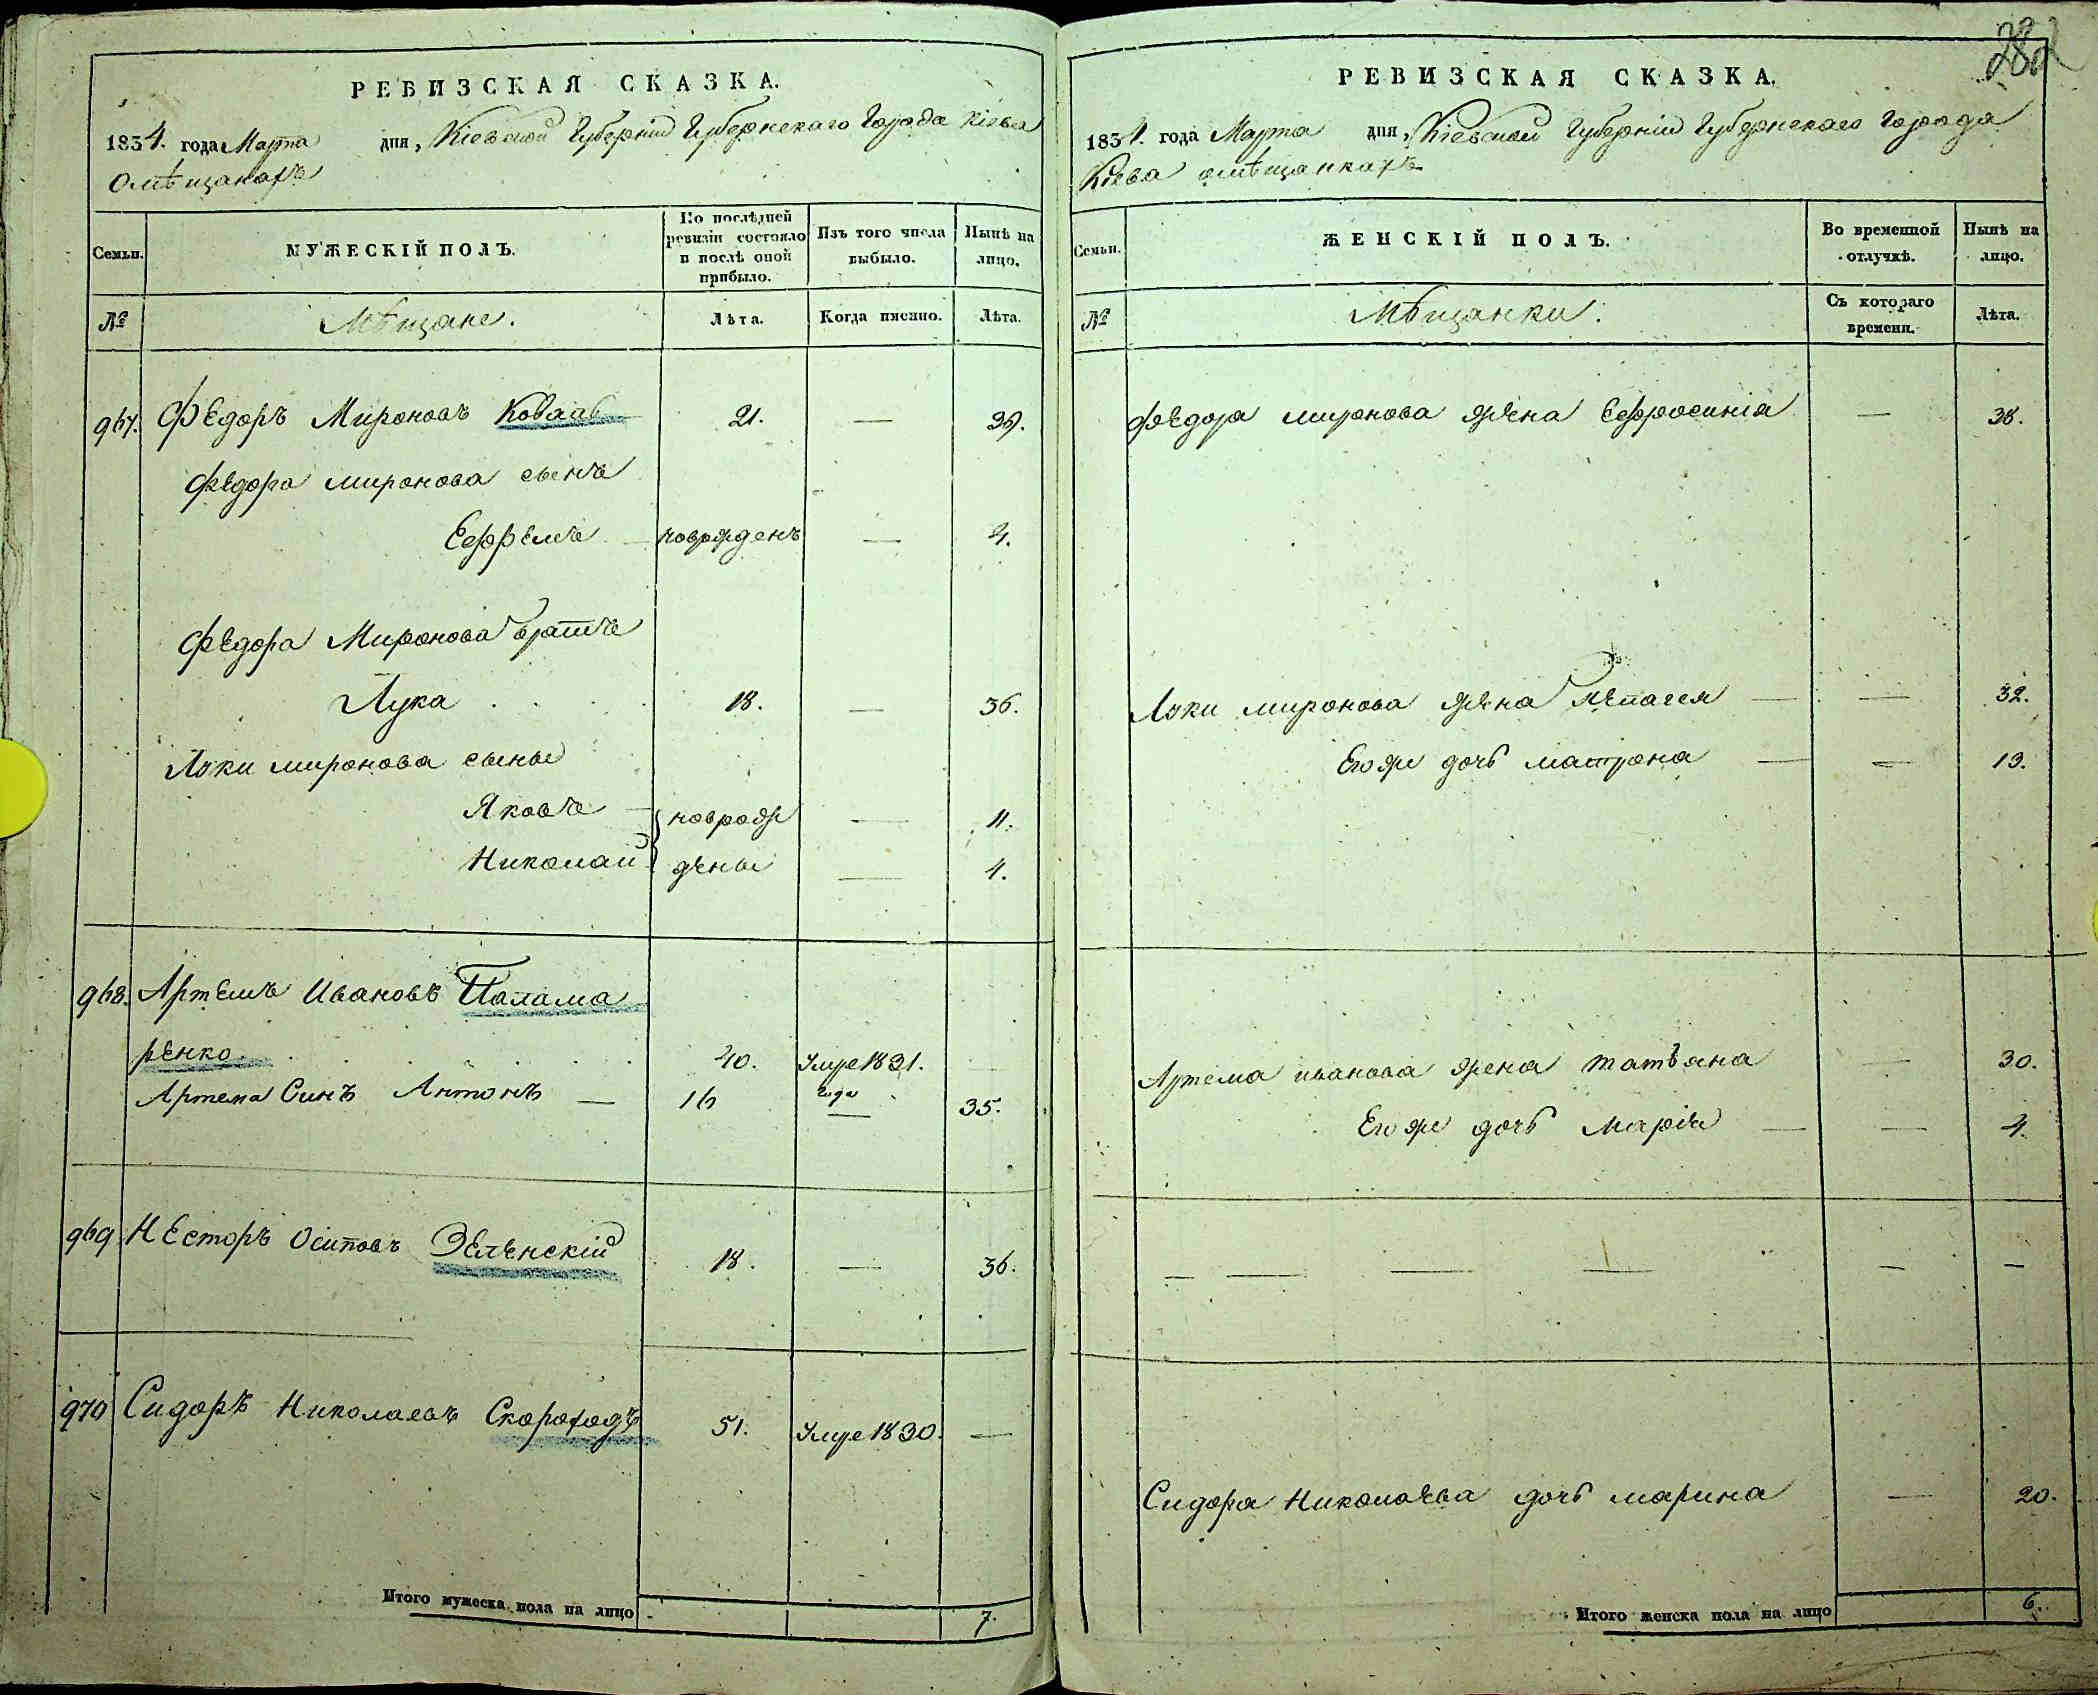 РЕВИЗСКАЯ СКАЗКА.
1834. года Марта дня, Кіевской Губерніи Губернскаго Города Кіева
О мѣщанахъ
Семьи.
МУЖЕСКІЙ ПОЛЪ.
По послѣдней ревизіи состояло и послѣ оной прибыло.
Изъ того числа выбыло.
Нынѣ на лицо.
№
Мѣщане.
Лѣта.
Когда имянно.
Лѣта.
967. Федоръ Мироновъ Коваль 21. — 39.
Федора Миронова сынъ
Ефремъ новрожденъ — 4.
Федора Миронова братъ
Лука 18. — 36.
Луки Миронова сыны
Яковъ новрож — 11.
Николай дены — 4.
968. Артемъ Ивановъ Палама
ренко. 40. Умре 1831. года
Артема Синъ Антонъ — 16 — 35.
969 Несторъ Осиповъ Зеленскій 18. — 36.
970 Сидоръ Николаевъ Скороходъ 51. Умре 1830. —
Итого мужеска пола на лицо 7.
282
РЕВИЗСКАЯ СКАЗКА.
1834. года Марта дня, Кіевской Губерніи Губернскаго Города
Кіева о мѣщанкахъ
Семьи.
ЖЕНСКІЙ ПОЛЪ.
Во временной отлучкѣ.
Нынѣ на лицо.
№
Мѣщанки.
Съ котораго времени.
Лѣта.
Федора Миронова жена Ефросинія — 38.
Луки Миронова жена — — 32.
Егоже дочь Матрона — — 13.
Артема Иванова жена Татьяна — 30.
Егоже дочь Марія — — 4.
— — — — — —
Сидора Николаева дочь Марина — 20.
Итого женска пола на лицо 6.